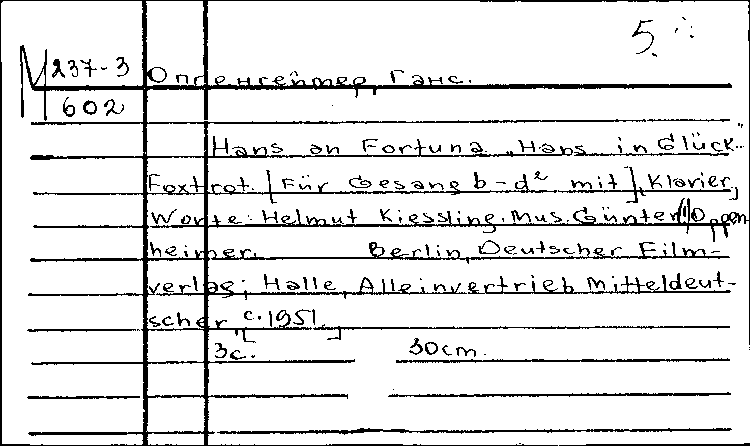 5.
М 237-3 Оппенгеймер, Ганс.
602
Hans an Fortuna „Hans in Glück“.
Foxtrot. [Für Gesang b-d² mit] Klavier,
Worte: Helmut Kiessling. Mus. Günter (!) Oppen-
heimer. Berlin, Deutscher Film-
verlag; Halle, Alleinvertrieb Mitteldeut-
scher, [c. 1951.]
3с. 30cm.